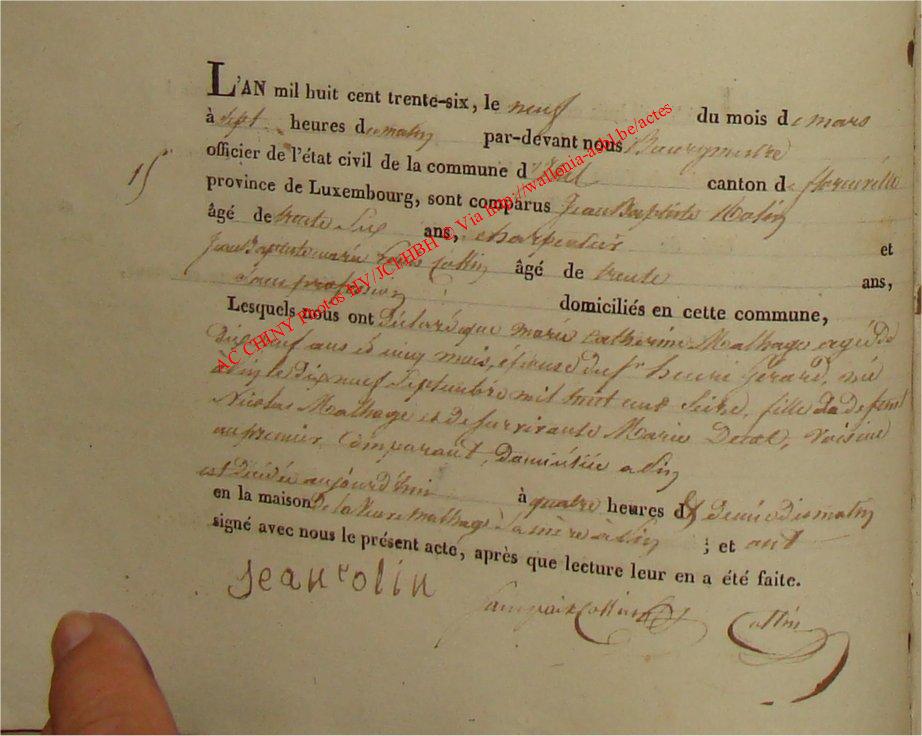 L'AN mil huit cent trente-six, le neuf du mois de mars
à sept heures du matin par-devant nous Bourgmestre
officier de l'état civil de la commune d'Izel canton de florenville
15
province de Luxembourg, sont comparus Jean Baptiste Colin
âgé de trente six ans, charpentier et
Jean Baptiste marie Louis Collin âgé de trente ans,
Sans profession domiciliés en cette commune,
Lesquels nous ont déclaré que marie catherine Malhage agée de
dix neuf ans et cinq mois, épouse du Sr henri Gérard, née
à le dix neuf Septembre mil huit cent Seize, fille de feu
Nicolas Malhage et de survivante Marie voisine
au premier Comparant, domiciliée a
est décédée aujourd'hui à quatre heures et demie du matin
en la maison De la Veuve Malhage Sa mère ; et ont
signé avec nous le présent acte, après que lecture leur en a été faite.
Jean colin
Collin
AC CHINY Photos HV/JCFHBH © Via http://wallonia-asbl.be/actes